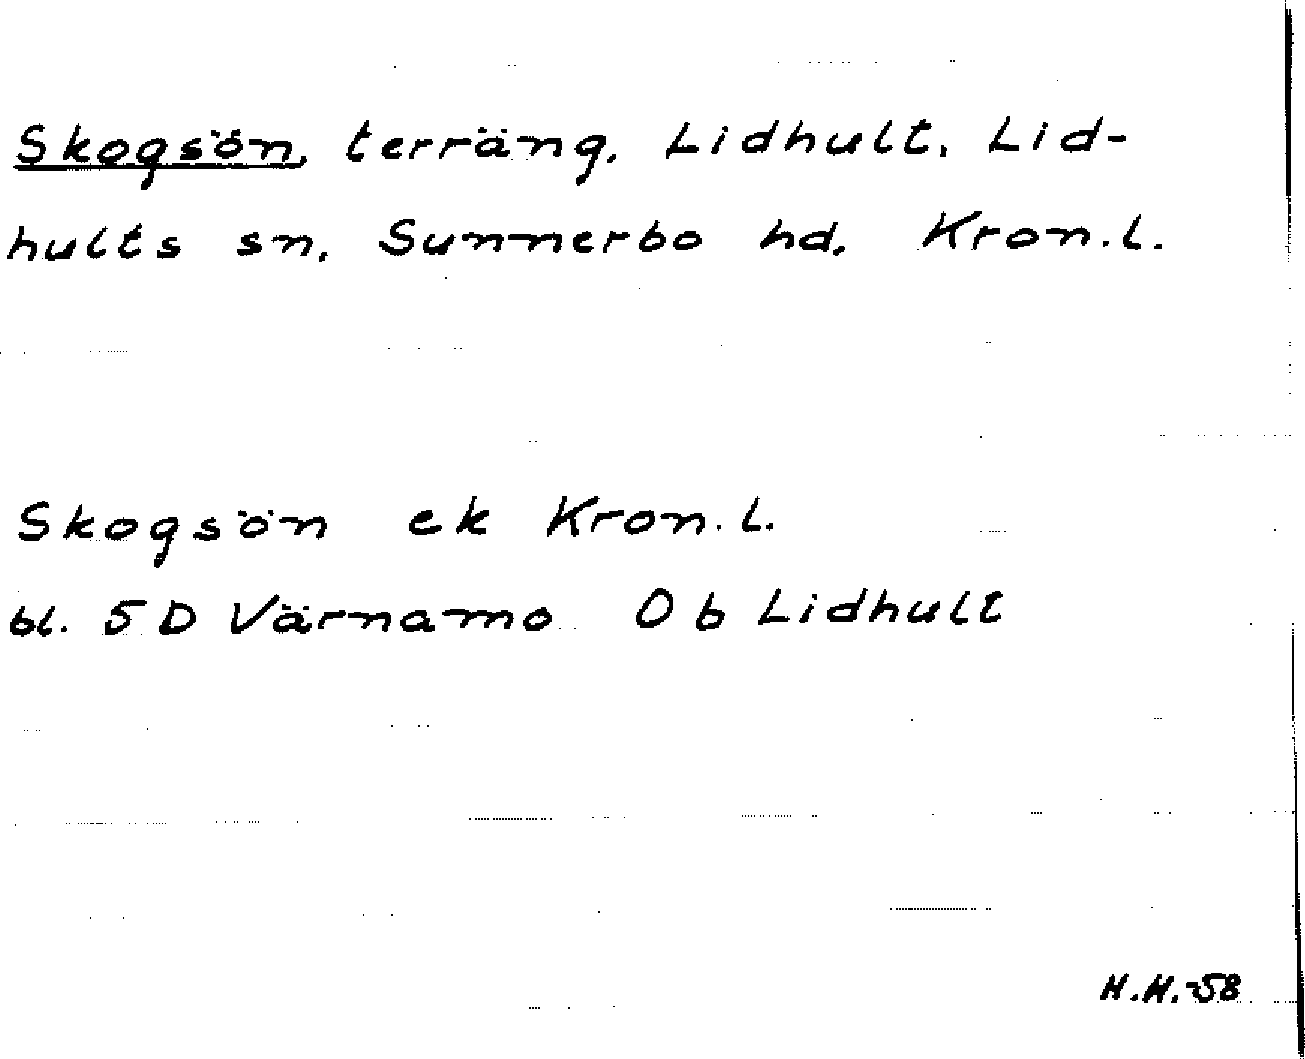 Skogsön, terräng, Lidhult, Lid-
hults sn, Sunnerbo hd, Kron.l.
Skogsön ek Kron.l.
bl. 5 D Värnamo 0 b Lidhult
H.M.-58